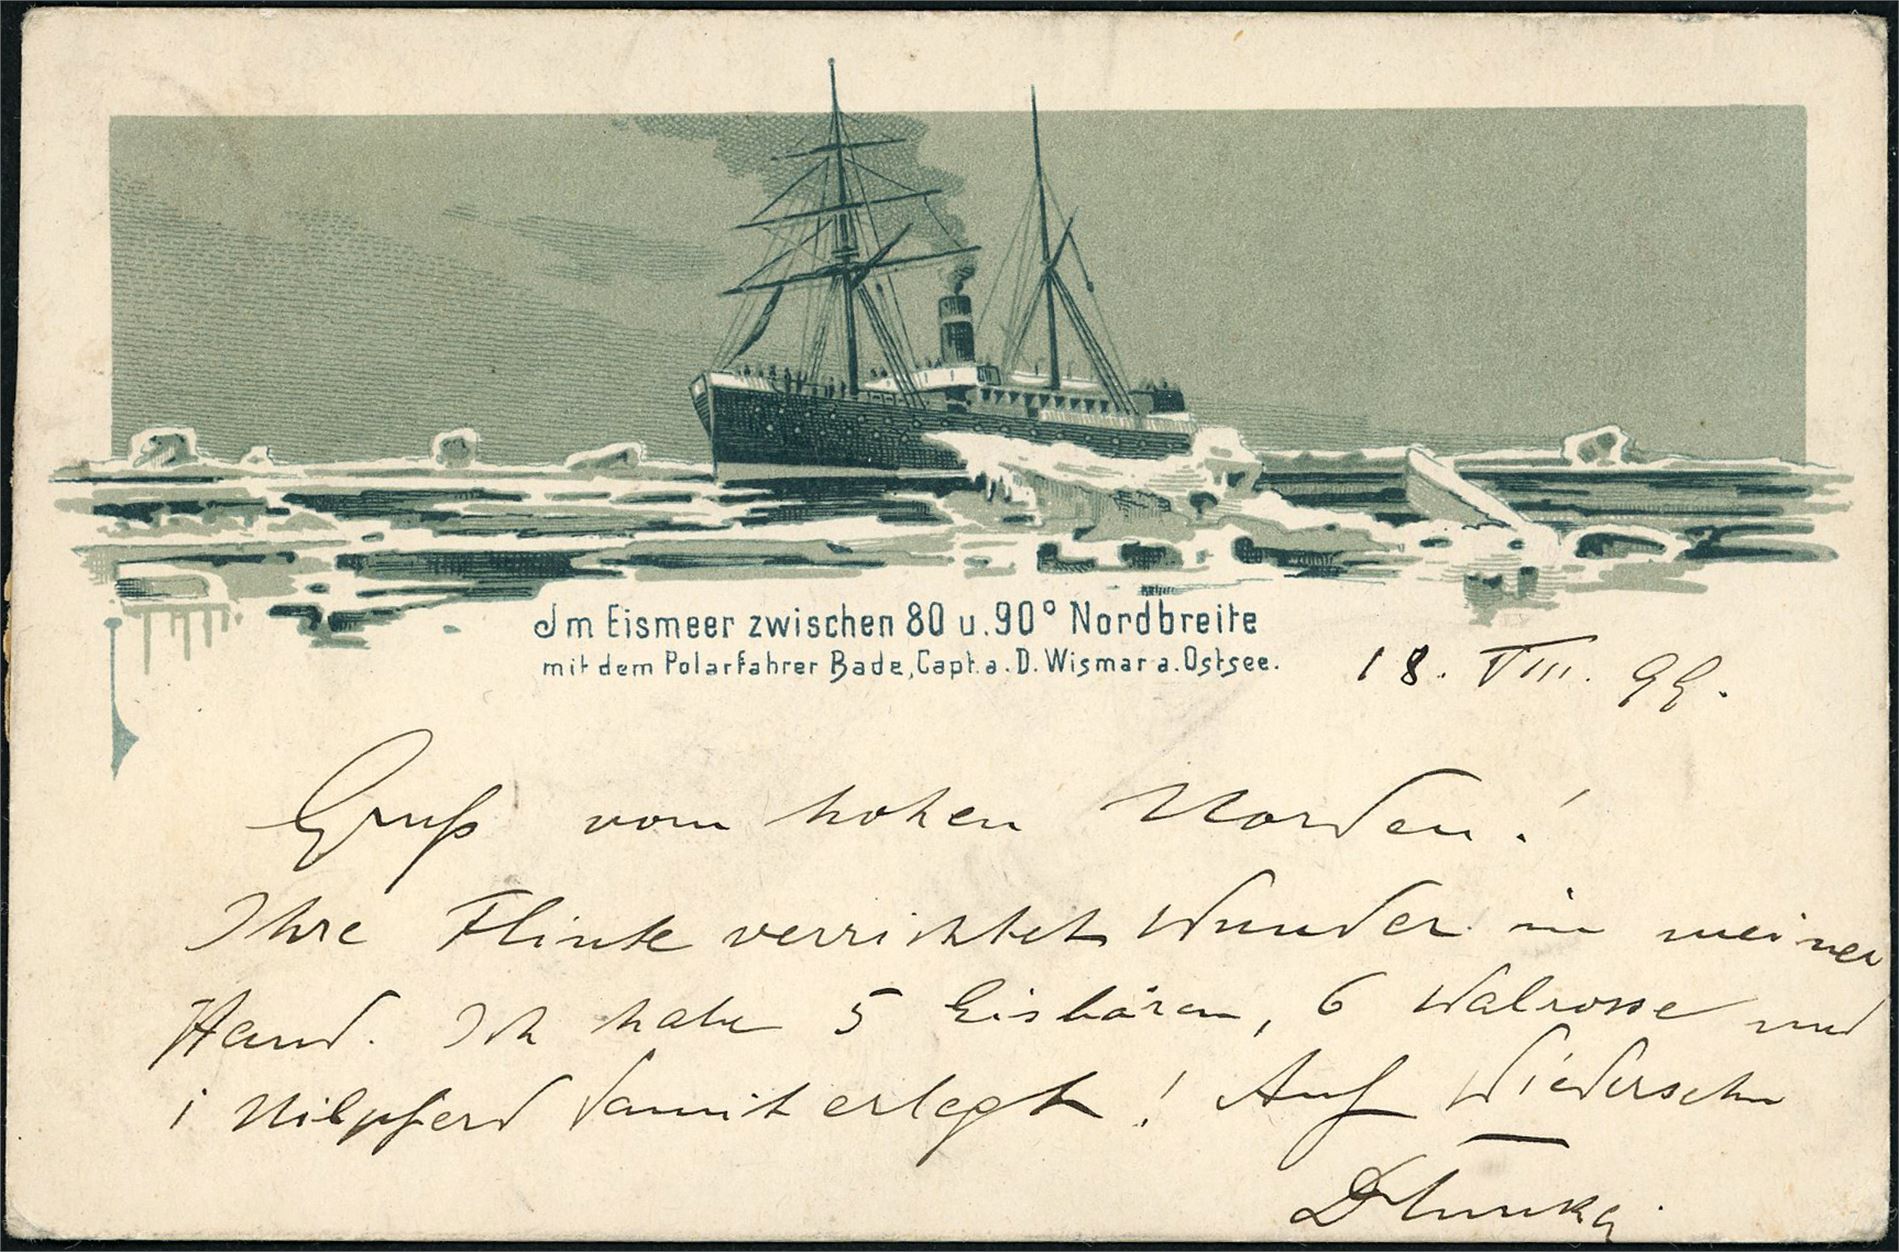 Im Eismeer zwischen 80 u. 90° Nordbreite
mit dem Polarfahrer Bade, Capt. a. D. Wismar a. Ostsee.
18. VIII. 99.
Gruß vom hohen Norden!
Ihre Flinte verrichtet Wunder in meiner
Hand. Ich habe 5 Eisbären, 6 Walrosse und
1 Nilpferd damit erlegt! Auf Wiedersehn